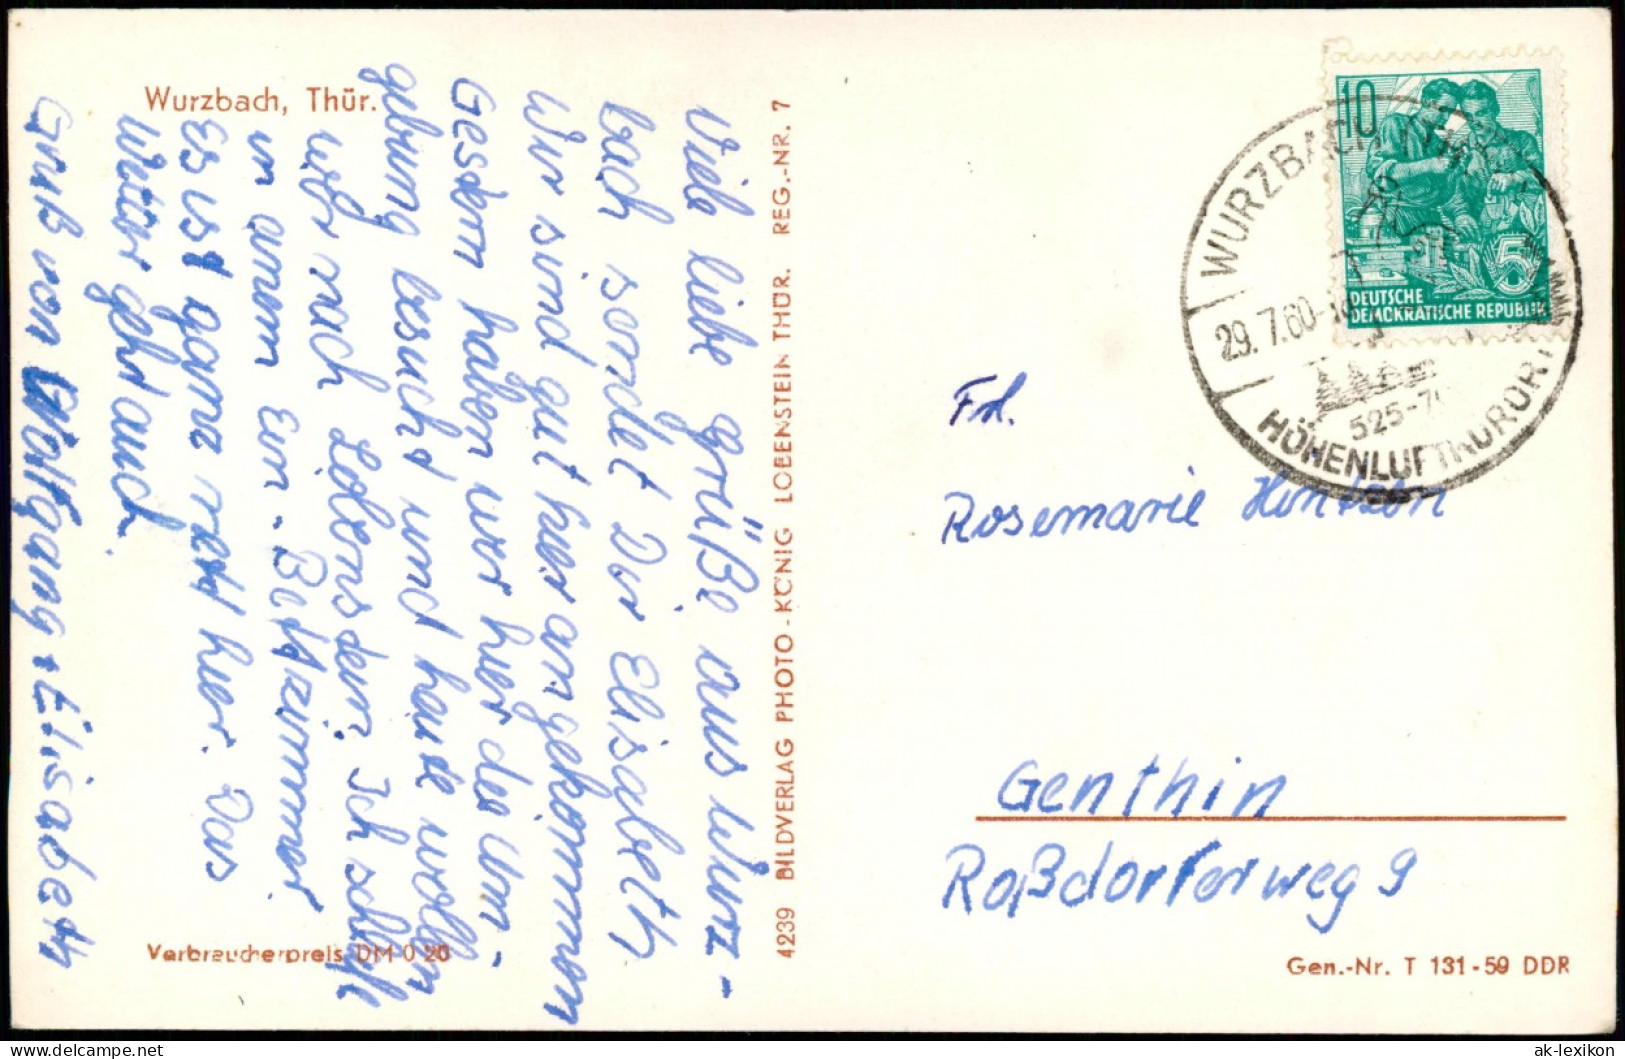 Wurzbach, Thür.
Viele liebe Grüße aus Wurz-
bach sendet Dir Elisabeth
Wir sind gut hier angekommen
Gestern haben wir hier die Um-
gebung besucht und heute wollen
wir nach Lobenstein. Ich schlafe
in einem Ein-Bettzimmer
Es ist ganz nett hier. Das
Wetter geht auch.
Gruß von Wolfgang + Elisabeth
Verbraucherpreis DM 0 20
4239 BILDVERLAG PHOTO-KÖNIG LOBENSTEIN THÜR. REG.-NR. 7
10
5
DEUTSCHE
DEMOKRATISCHE REPUBLIK
WURZBACH
29. 7.60
525-7
HÖHENLUFTKURORT
Frl.
Rosemarie
Genthin
Roßdorferweg 9
Gen.-Nr. T 131-59 DDR
delcampe.net
ak-lexikon